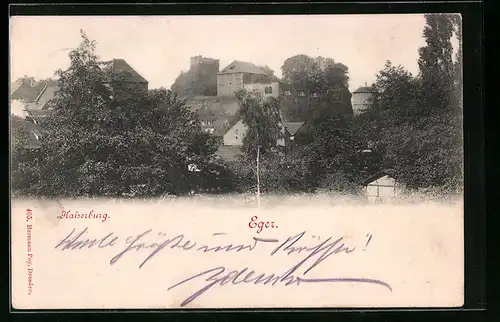 Kaiserburg.
Eger.
Viele Grüße und Küsse!
Zdenka
405. Hermann Poy, Dresden.